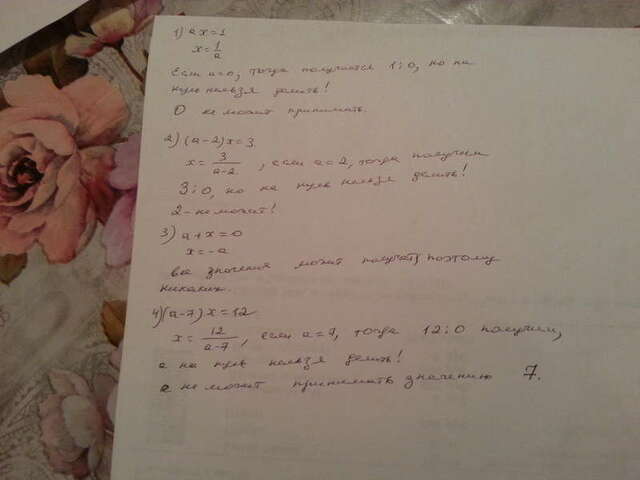 1) ax=1
x=1/a
Если a=0, тогда получается 1:0, но на
нуль нельзя делить!
0 не может принимать.
2) (a-2)x=3
x=3/a-2, если a=2, тогда получим
3:0, но на нуль нельзя делить!
2-не может!
3) a+x=0
x=-a
все значения может поэтому
никаких.
4) (a-7)x=12
x=12/a-7, если a=7, тогда 12:0 получим,
а на нуль нельзя делить!
a не может принимать значению 7.